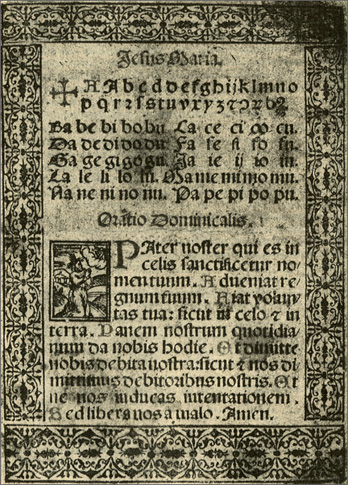 Jesus Maria.
✠ A A b c d d e f g h i j k l m n o
p q r r s s t u v x y z
Ba be bi bo bu Ca ce ci co cu.
Da de di do du Fa fe fi fo fu.
Ga ge gi go gu. Ja ie ij io iu.
La le li lo lu. Ma me mi mo mu.
Na ne ni no nu. Pa pe pi po pu.
Oratio Dominicalis.
PAter noster qui es in
celis sanctificetur no
men tuum. Adueniat re
gnum tuum. Fiat volun
tas tua: sicut in celo ⁊ in
terra. Panem nostrum quotidia
num da nobis hodie. Et dimitte
nobis debita nostra: sicut ⁊ nos di
mittimus debitoribus nostris. Et
ne nos inducas in tentationem.
Sed libera nos a malo. Amen.